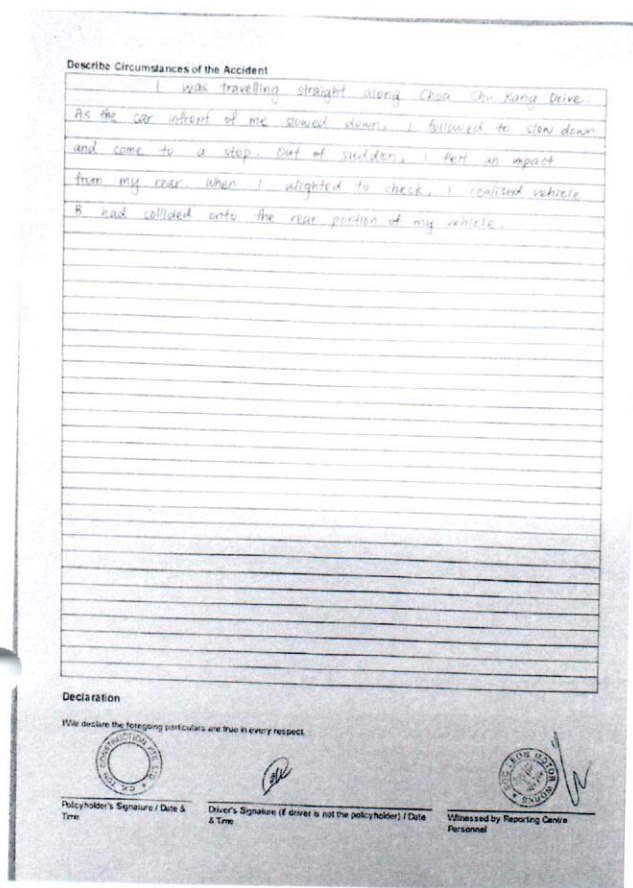 Describe Circumstances of the Accident
I was travelling straight along Choa Chu Kang Drive.
As the car infront of me slowed down, I followed to slow down
and come to a stop. Out of sudden, I felt an impact
from my rear. When I alighted to check, I realised vehicle
B had collided onto the rear portion of my vehicle.
Declaration
I/We declare the foregoing particulars are true in every respect.
CONSTRUCTION PTE LTD
LEON MOTOR WORKS
Policyholder's Signature / Date &
Time
Driver's Signature (if driver is not the policyholder) / Date
& Time
Witnessed by Reporting Centre
Personnel